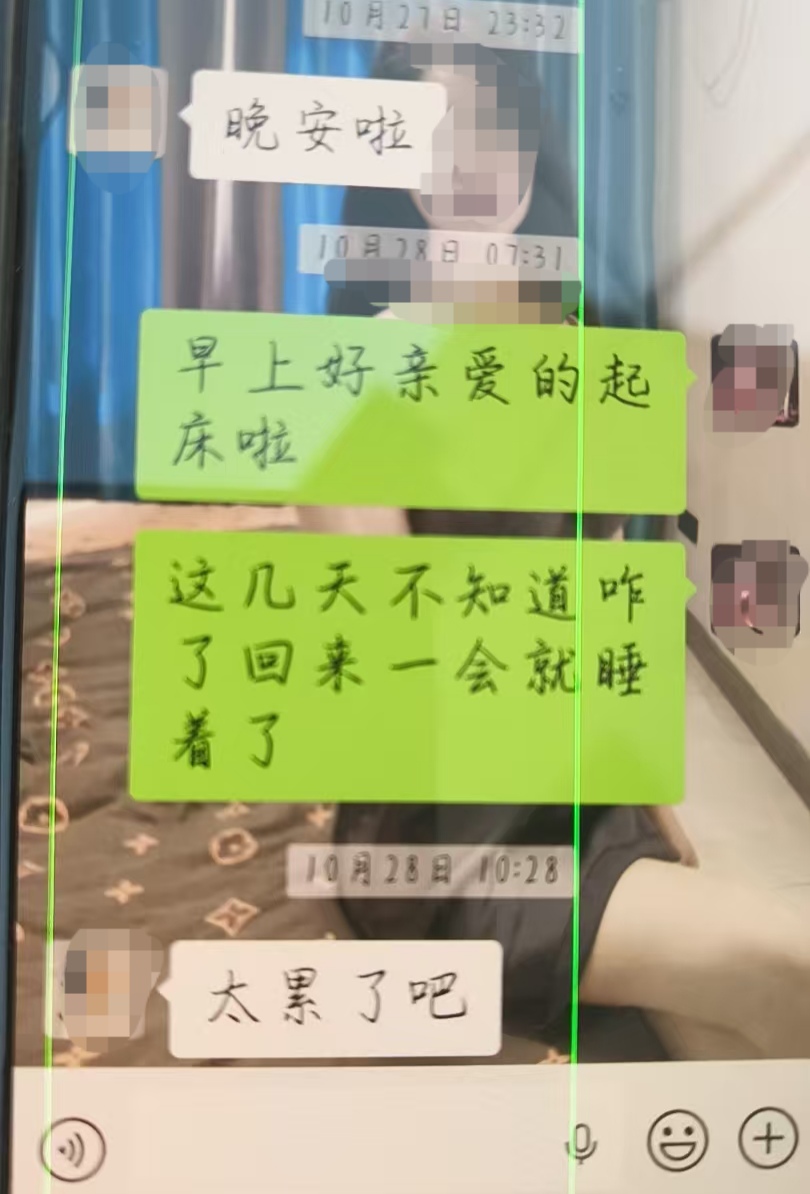 10月27日 23:32
晚安啦
10月28日 07:31
早上好亲爱的起
床啦
这几天不知道咋
了回来一会就睡
着了
10月28日 10:28
太累了吧